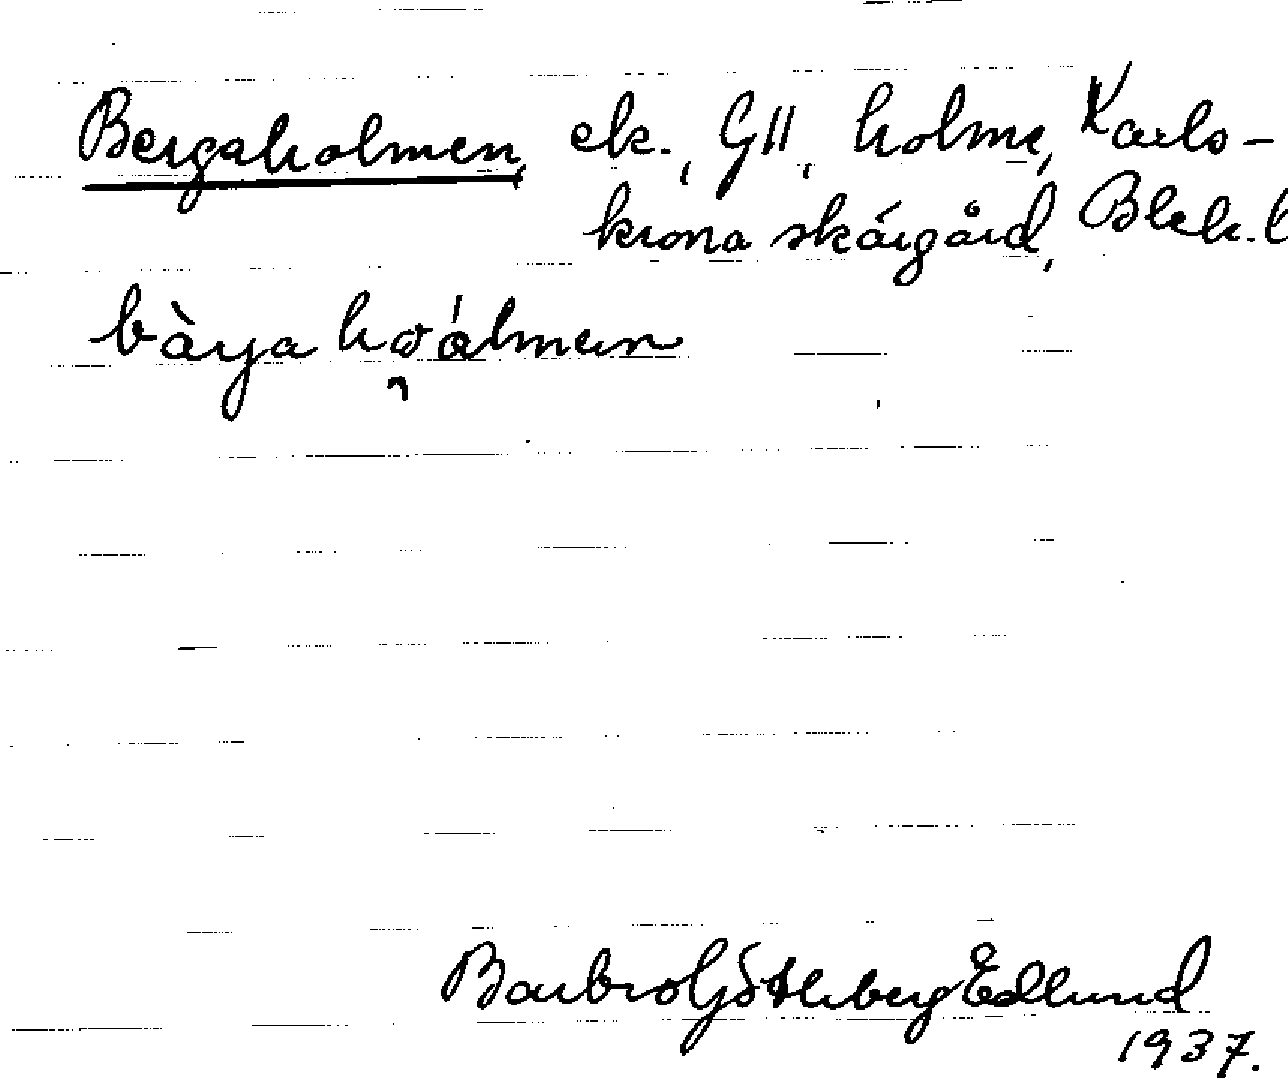 Bergaholmen, ek., G11, holme, Karls-
krona skärgård, Blek. l
bàrja hoálmen
Barbro Götlberg Edlund
1937.